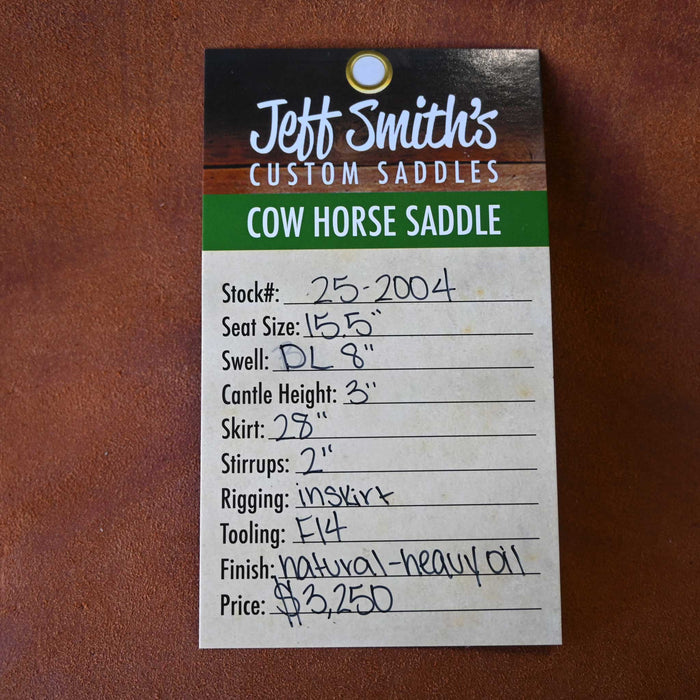 Jeff Smith's
CUSTOM SADDLES
COW HORSE SADDLE
Stock#: 25-2004
Seat Size: 15.5"
Swell: DL 8"
Cantle Height: 3"
Skirt: 28"
Stirrups: 2"
Rigging: inskirt
Tooling: F14
Finish: natural-heavy oil
Price: $3,250